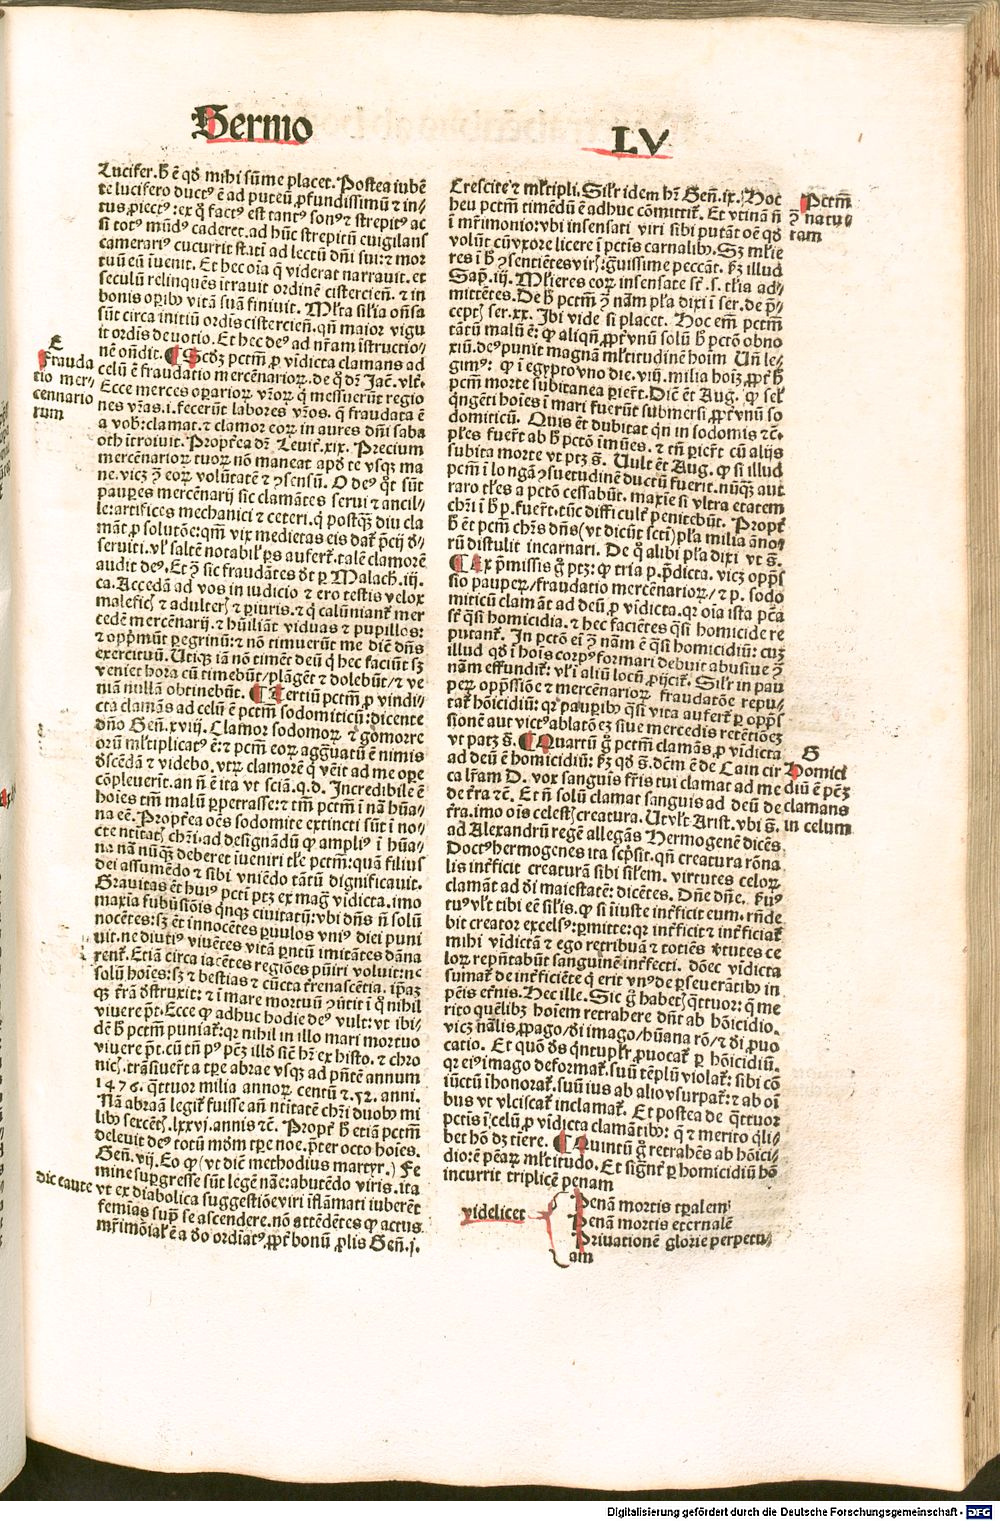 Sermo
LV
Lucifer. h̄ ē qd̛ mihi sūme placet. Postea iubē
te lucifero duct⁹ ē ad puteū ꝓfundissimū ⁊ in-
tus ꝓiect⁹: ex q̊ fact⁹ est tant⁹ son⁹ ⁊ strepit⁹ ac
si tot⁹ mūd⁹ caderet. ad hūc strepitū euigilans
camerari⁹ cucurrit statī ad lectū dn̄i sui: ⁊ mor
tuū eū īuenit. Et hec oīa q̄ viderat narrauit. et
seculū relinquēs ītrauit ordinē cisterciēn̄. ⁊ in
bonis oꝑib⁹ vitā suā finiuit. Ml̄ta sil̄ia on̄sa
sūt circa initiū ordīs cistercień. qn̄ maior vigu
it ordīs deuotio. Et hec de⁹ ad nr̄am īstructio-
nē on̄dit. ¶ Scd̛ꝫ pctm̄ ꝓ vīdicta clamans ad
celū ē fraudatio mercēnarioꝝ. de q̊ dr̄ Jac̄. vlt̄.
Ecce merces oꝑarioꝝ vr̄oꝝ q̄ messuerūt regio
nes vr̄as. i. fecerūt labores vr̄os. q̄ fraudata ē
a vob̛: clamat. ⁊ clamor eoꝝ in aures dn̄i saba
oth ītroiuit. Propt̄ea dr̄ Leuit̄. xix. Precium
mercēnarioꝝ tuoꝝ nō maneat apd̛ te vsqꝫ ma
ne. vicꝫ ↄ̄ eoꝝ volūtatē ⁊ ↄ̄sensū. O de⁹ q̊t sūt
pauꝑes mercēnarij sic clamātes serui ⁊ ancil-
le: artifices mechanici ⁊ ceteri. q̄ postq̄ꝫ diu cla
māt ꝓ solutōe: qm̄ vix medietas eis dat̄ p̄cij d̛-
seruiti. vl̛ saltē notabil̛ ꝑs aufert̄. talē clamorē
audit de⁹. Et ↄ̄ sic fraudātes d̛t ꝑ Malach. iij.
ca. Accedā ad vos in iudicio ⁊ ero testis velox
malefic̛ ⁊ adulter̛ ⁊ ꝑiuris. ⁊ q̄ calūniant̄ mer
cedē mercēnarij. ⁊ hūiliāt viduas ⁊ pupillos:
⁊ opp̄mūt ꝑegrinū: ⁊ nō timuerūt me dic̄ dn̄s
exercituū. Utiqꝫ iā nō timēt deū q̄ hec faciūt sꝫ
veniet hora cū timebūt / plāgēt ⁊ dolebūt / ⁊ ve
niā nullā obtinebūt. ¶ Tertiū pctm̄ ꝓ vindi-
cta clamās ad celū ē pctm̄ sodomiticū: dicente
dn̄o Gen̄. xviij. Clamor sodomoꝝ ⁊ gomorre
orū ml̄tiplicat⁹ ē: ⁊ pctm̄ eoꝝ agg̊uatū ē nimis
d̛scēdā ⁊ videbo. vtꝝ clamorē q̄ vēit ad me oꝑe
cōpleuerīt. an n̄ ē ita vt sciā. q. d. Incredibile ē
hoīes tm̄ malū ꝑpetrasse: ⁊ tm̄ pctm̄ ī nā hūa-
na eē. Propt̄ea oēs sodomite extincti sūt ī no-
cte ntītat̛ chr̄i. ad designādū ꝙ ampli⁹ ī hūa-
na nā nūq̄ꝫ deberet īueniri tl̄e pctm̄: quā filius
dei assumēdo ⁊ sibi vniēdo tātū dignificauit.
Grauitas ēt hui⁹ pcti ptꝫ ex mag̊ vīdicta. imo
maxīa subūsiōis q̄nqꝫ ciuitatū: vbi dn̄s n̄ solū
nocētes: sꝫ ēt innocētes ꝑuulos vni⁹ diei puni
uit. ne diuti⁹ viuētes vitā pn̄tū imitātes dāna
rent̄. Etiā circa iacētes regiōes pūiri voluit: nō
solū hoīes: sꝫ ⁊ bestias ⁊ cūcta t̄renascētia. ip̄aꝫ
qꝫ t̄rā d̛struxit: ⁊ ī mare mortuū ↄ̄ūtit ī q̊ nihil
viuere pōt. Ecce ꝙ adhuc hodie de⁹ vult: vt ibi-
dē h̄ pctm̄ puniat̄: qꝛ nihil in illo mari mortuo
viuere pōt. cū tn̄ p⁹ pctꝫ illd̛ sic̄ hr̄ ex histo. ⁊ chro
nic̛. trāsiuer̄t a tꝑe abrae vsqꝫ ad pn̄tē annum
1476. q̊ttuor milia annoꝝ centū ⁊ .52. anni.
Nā abraā legit̄ fuisse an̄ ntītatē chr̄i duob⁹ mi
lib⁹ sexcēt̛. lxxvi. annis ⁊c̄. Propt̄ h̄ etiā pctm̄
deleuit de⁹ totū mūdm̄ tꝑe noe. p̄ter octo hoīes.
Gen̄. vij. Eo ꝙ (vt dic̄ methodius martyr.) Fe
mine suꝑgresse sūt legē nāe: abutēdo viris. ita
vt ex diabolica suggestiōe viri īflāmati iuberēt
femīas sup̄ se ascendere. nō attēdētes ꝙ actus
mr̄imōial̛ ē a d̛o ordīat⁹. ꝓpt̄ bonū ꝓlis Gen̄. j.
E
Frauda
tio mer-
cennario
rum
Dic caute
Crescite ⁊ ml̄tipli. Sil̄r idem hr̄ Gen̄. ix. Hoc
heu pctm̄ timēdū ē adhuc cōmittit̄. Et vtinā n̄
ī mr̄imonio: vbi insensati viri sibi putāt oē qd̛
volūt cū vxore licere ī pctis carnalib⁹. Sꝫ ml̄ie
res ī h̄ ↄ̄sentiētes vir̛: g̊uissime peccāt. hꝫ illud
Sap̄. iij. Ml̄ieres eoꝝ insensate st̄. s. tl̄ia ad-
mittētes. De h̄ pctm̄ ↄ̄ nām pl̄a dixi ī ser. de p̄-
cept̛ ser. xx. Ibi vide si placet. Hoc em̄ pctm̄
tātū malū ē: ꝙ aliqn̄ ꝓpt̄ vnū solū h̄ pctō obno
xiū. de⁹ punit magnā ml̄titudinē hoīm Un̄ le-
gim⁹: ꝙ ī egypto vno die. viij. milia hoīꝫ ꝓpt̄ h̄
pctm̄ morte subitanea ꝑier̄t. Dic̄ ēt Aug. ꝙ sel̛
q̄ngēti hoīes ī mari fuerūt submersi ꝓpt̄ vnū so
domiticū. Quis ēt dubitat qn̄ in sodomis ⁊c̄.
pl̄es fuer̄t ab h̄ pctō īmūes. ⁊ tn̄ ꝑier̄t cū alijs
subita morte vt ptꝫ s̄. Uult ēt Aug. ꝙ si illud
pctm̄ ī longā ↄ̄suetudinē ductū fuerit. nūq̄ꝫ aut
raro tl̄es a pctō cessabūt. maxīe si vltra etatem
chr̄i ī h̄ p. fuer̄t. tūc difficult̄ penitebūt. Propt̄
h̄ ēt pctm̄ chr̄s dn̄s (vt dicūt scti) pl̄a milia āno-
rū distulit incarnari. De q̊ alibi pl̄a dixi vt s̄.
¶ Ex p̄missis g̊ ptꝫ: ꝙ tria p. p̄dicta. vicꝫ opp̄s
sio pauꝑeꝝ / fraudatio mercēnarioꝝ / ⁊ p. sodo
miticū clamāt ad deū ꝓ vīdicta. qꝛ oīa ista pc̄a
st̄ q̄si homicidia. ⁊ hec faciētes q̄si homicide re
putant̄. In pctō ei̛ ↄ̄ nām ē q̄si homicidiū: cuꝫ
illud qd̛ ī hoīs corp⁹ formari debuit abusiue ↄ̄
nām effundit̄: vl̛ ī aliū locū ꝓijcit̄. Sil̄r in pau
peꝝ opp̄ssiōe ⁊ mercēnarioꝝ fraudatōe repu-
tat̄ hōicidiū: qꝛ pauꝑib⁹ q̄si vita aufert̄ ꝑ opp̄s
sionē aut vict⁹ ablatōeꝫ siue mercedis retētiōeꝫ
vt patꝫ s̄. ¶ Quartū g̊ pctm̄ clamās ꝓ vīdicta
ad deū ē homicidiū: hꝫ qd̛ s̄. dc̄m ē de Cain cir
ca lr̄am D. vox sanguis fr̄is tui clamat ad me
de t̄ra ⁊c̄. Et n̄ solū clamat sanguis ad deū de
t̄ra. imo oīs celest̛ creatura. Ut vl̛t Arist. vbi s̄.
ad Alexandrū regē allegās Hermogenē dicēs.
Doct⁹ hermogenes ita scp̄sit. qn̄ creatura rōna
lis int̄ficit creaturā sibi sil̄em. virtutes celoꝝ
clamāt ad d̛i maiestatē: dicētes. Dn̄e dn̄e. ẜu⁹
tu⁹ vl̛t tibi eē sil̄is. ꝙ si īiuste int̄ficit eum. rn̄de
bit creator excels⁹: ꝑmitte: qꝛ int̄ficit ⁊ int̄ficiat̄
mihi vīdictā ⁊ ego retribuā ⁊ totiēs v̄tutes ce
loꝝ rep̄ntabūt sanguinē int̄fecti. dōec vīdicta
sumat̄ de int̄ficiēte q̄ erit vn⁹ de ꝑseuerātib⁹ in
pēis et̄nis. Hec ille. Sic g̊ habet̛ q̊ttuor: q̄ me
rito quēlibꝫ hoīem retrahere dn̄t ab hōicidio.
vicꝫ nālis ꝓpago / d̛i imago / hūana rō / ⁊ d̛i ꝓuo
catio. Et quō d̛s q̄ntupl̄r ꝓuocat̄ ꝑ hōicidiū.
qꝛ ei⁹ imago deformat̄. suū tēplū violat̄: sibi cō
iūctū īhonorat̄. suū ius ab alio vsurpat̄: ⁊ ab oī
bus vt vlciscat̄ inclamat̄. Et postea de q̊ttuor
pctis ī celū ꝓ vīdicta clamātib⁹: q̄ ⁊ merito q̄li-
bet hō dꝫ tīere. ¶ Quintū g̊ retrahēs ab hōici-
dio: ē pēaꝝ ml̄titudo. Et signt̄ ꝑ homicidiū hō
incurrit triplicē penam
videlicet
Penā mortis tꝑalem
Penā mortis eternalē
Priuationē glorie perpetu-
am
Pctm̄
ↄ̄ natu-
ram
G
Homici
diū ē pctꝫ
clamans
in celum
Digitalisierung gefördert durch die Deutsche Forschungsgemeinschaft - DFG